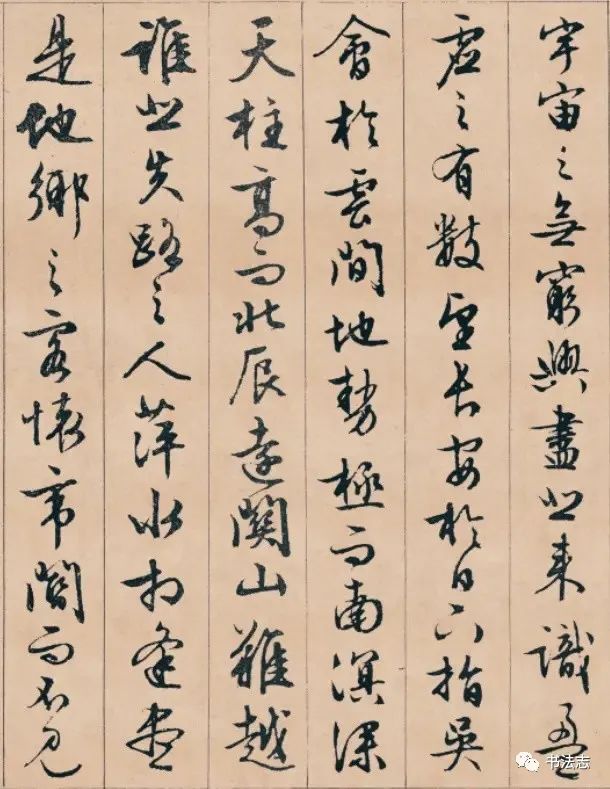 宇宙之無窮興盡悲來識盈
虛之有數望長安於日下指吳
會於雲間地勢極而南溟深
天柱高而北辰遠關山難越
誰悲失路之人萍水相逢盡
是他鄉之客懷帝閽而不見
书法志